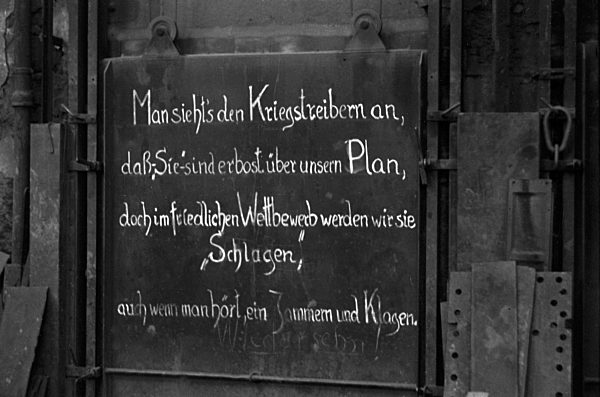 Man sieht's den Kriegstreibern an,
daß „Sie“ sind erbost über unsern Plan,
doch im friedlichen Wettbewerb werden wir sie
„Schlagen“,
auch wenn man hört, ein Jammern und Klagen.